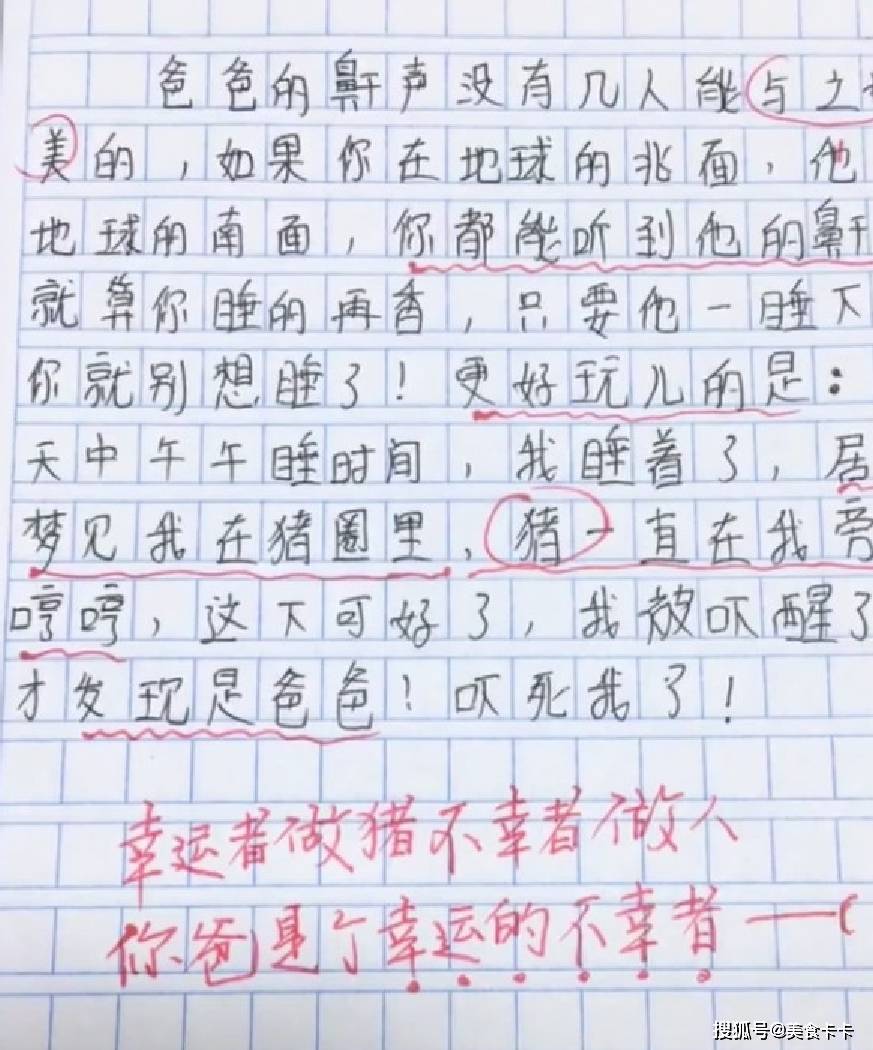 爸爸的鼾声没有几人能与之
美的，如果你在地球的北面，他
地球的南面，你都能听到他的鼾
就算你睡的再香，只要他一睡下
你就别想睡了！更好玩儿的是：
天中午午睡时间，我睡着了，居
梦见我在猪圈里，猪一直在我旁
哼哼，这下可好了，我被吓醒了
才发现是爸爸！吓死我了！
幸运者做猪不幸者做人
你爸是个幸运的不幸者——(
搜狐号@美食卡卡